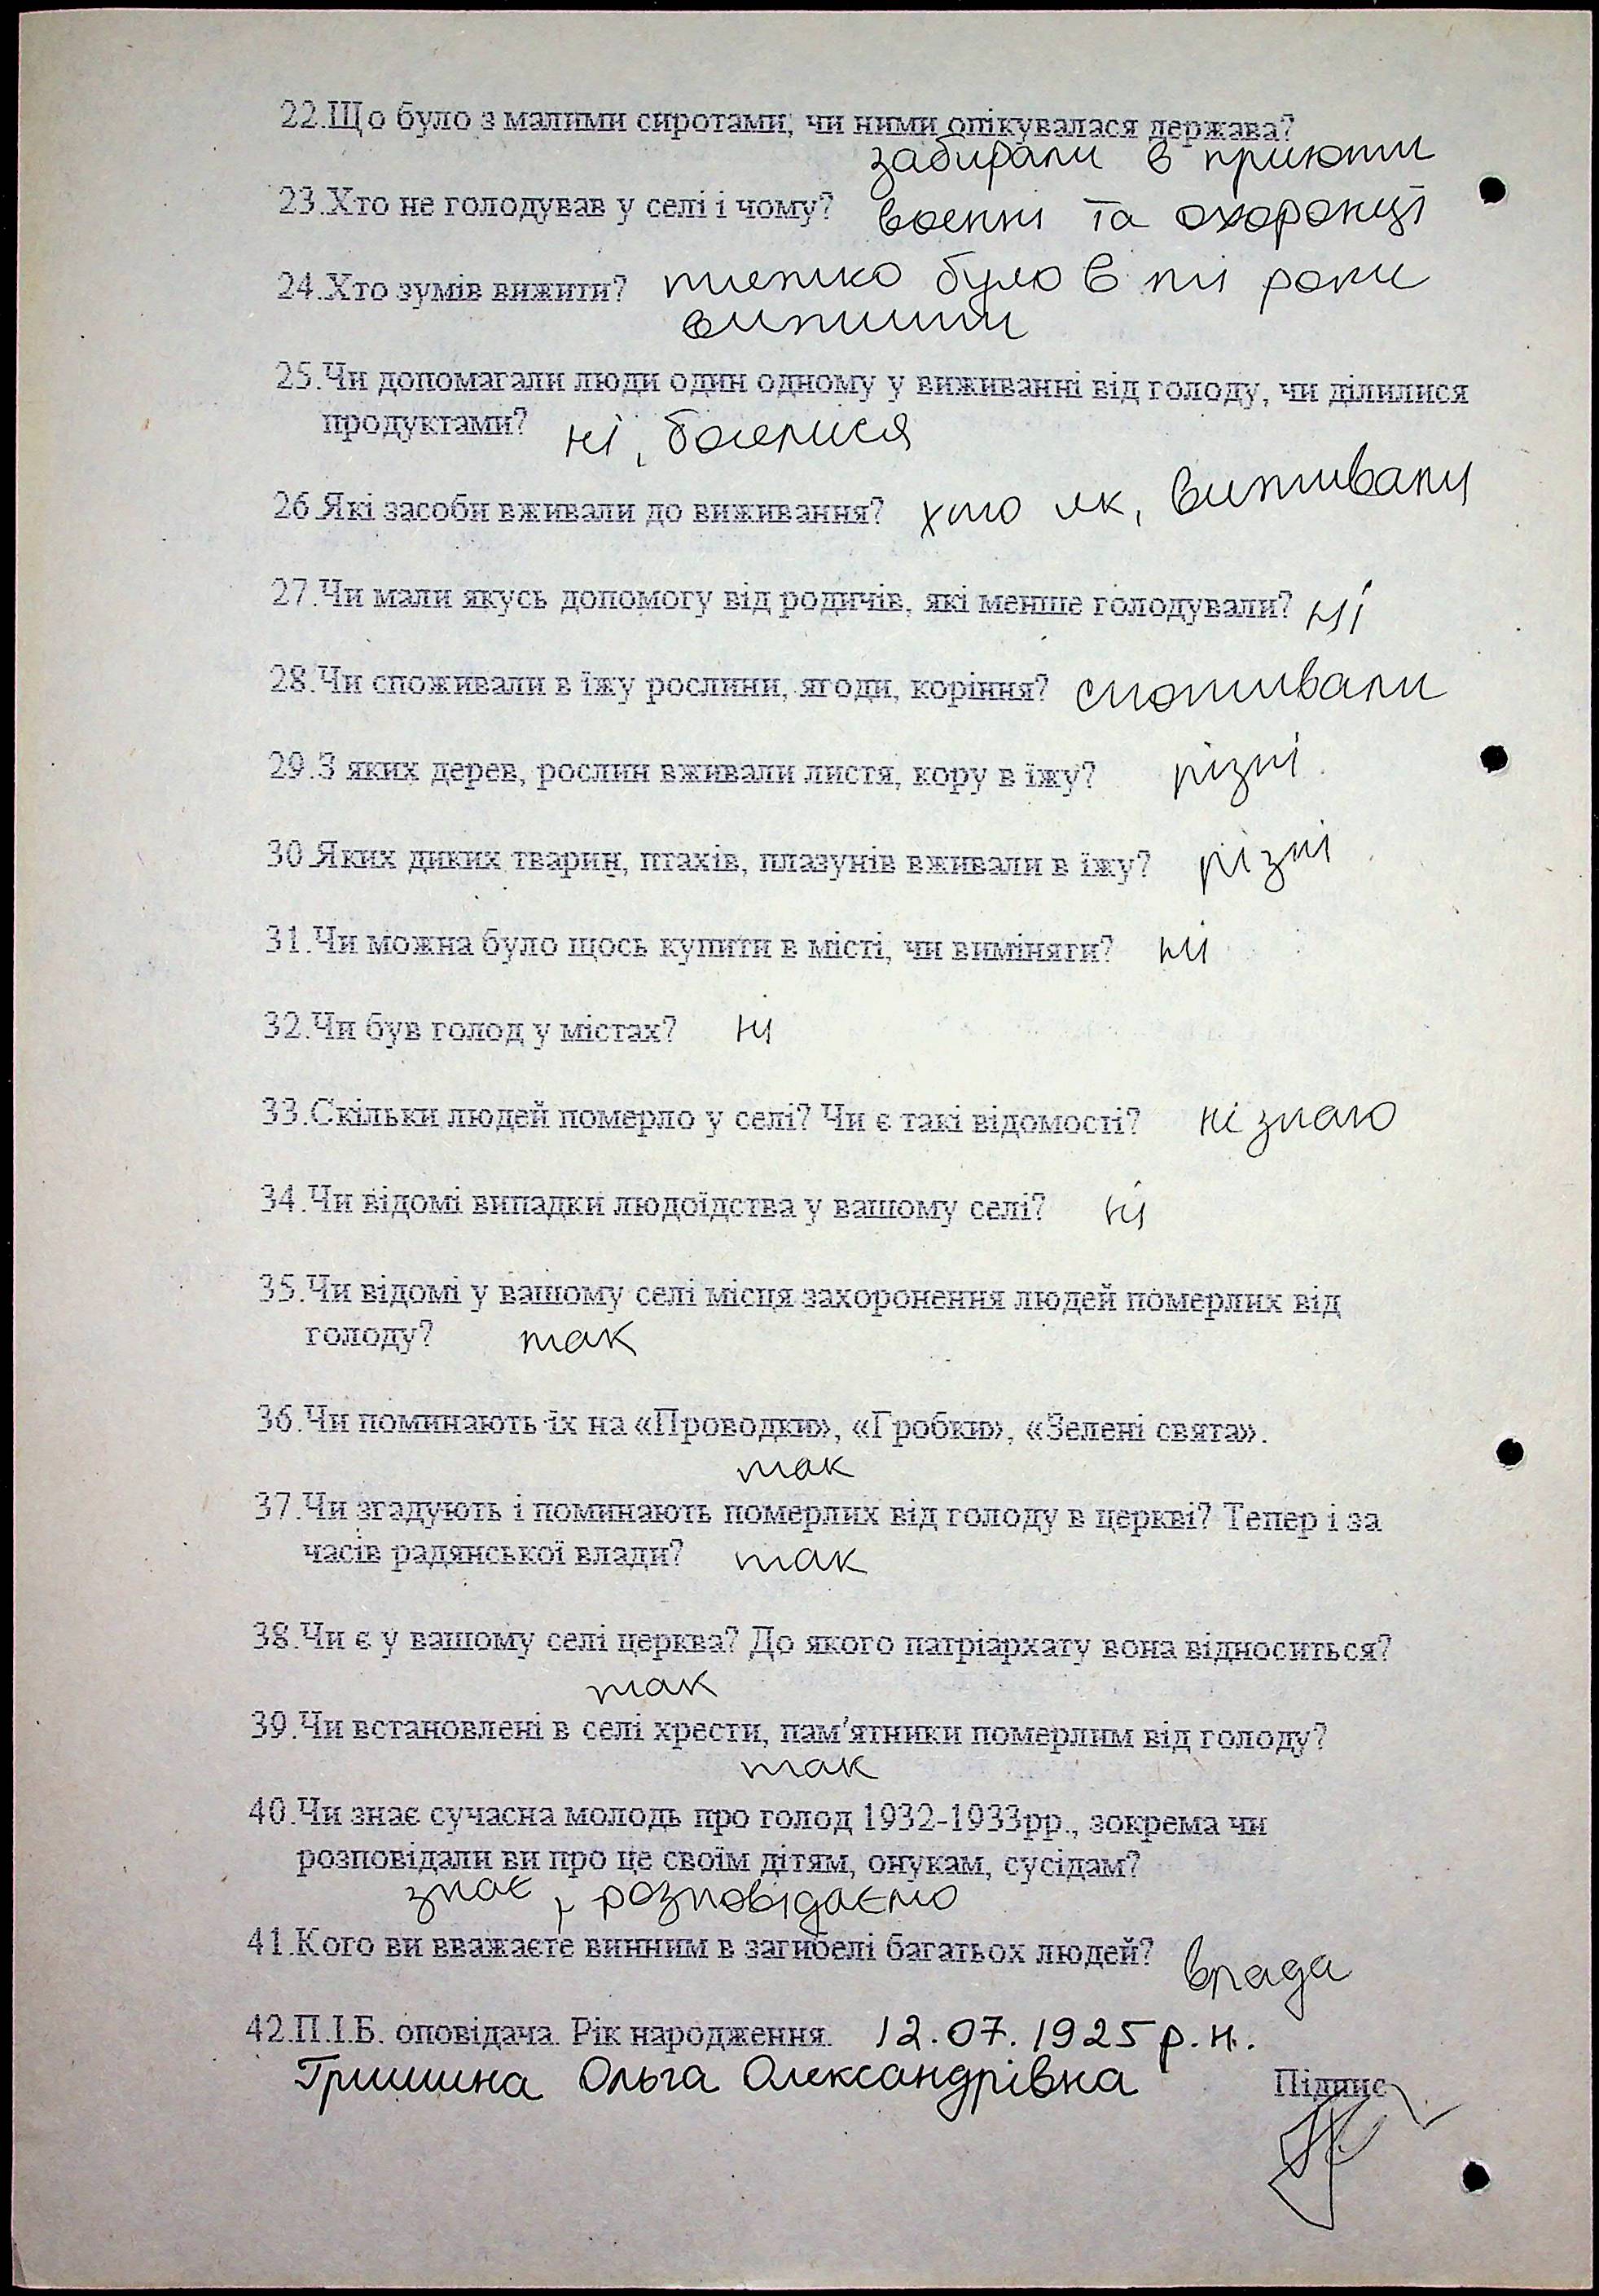 22.Що було з малими сиротами, чи ними опікувалася держава?
забирали в приюти
23.Хто не голодував у селі і чому? воєнні та охоронці
24.Хто зумів вижити? тяжко було в ті роки
вижити
25.Чи допомагали люди один одному у виживанні від голоду, чи ділилися
продуктами? ні, боялися
26.Які засоби вживали до виживання? хто як, виживали
27.Чи мали якусь допомогу від родичів, які менше голодували? ні
28.Чи споживали в їжу рослини, ягоди, коріння? споживали
29.З яких дерев, рослин вживали листя, кору в їжу? різні
30.Яких диких тварин, птахів, плазунів вживали в їжу? різні
31.Чи можна було щось купити в місті, чи виміняти? ні
32.Чи був голод у містах? ні
33.Скільки людей померло у селі? Чи є такі відомості? не знаю
34.Чи відомі випадки людоїдства у вашому селі? ні
35.Чи відомі у вашому селі місця захоронення людей померлих від
голоду? так
36.Чи поминають їх на «Проводки», «Гробки», «Зелені свята».
так
37.Чи згадують і поминають померлих від голоду в церкві? Тепер і за
часів радянської влади? так
38.Чи є у вашому селі церква? До якого патріархату вона відноситься?
так
39.Чи встановлені в селі хрести, пам'ятники померлим від голоду?
так
40.Чи знає сучасна молодь про голод 1932-1933рр., зокрема чи
розповідали ви про це своїм дітям, онукам, сусідам?
знає, розповідаємо
41.Кого ви вважаєте винним в загибелі багатьох людей? влада
42.П.І.Б. оповідача. Рік народження. 12.07.1925 р.н.
Гришина Ольга Олександрівна Підпис